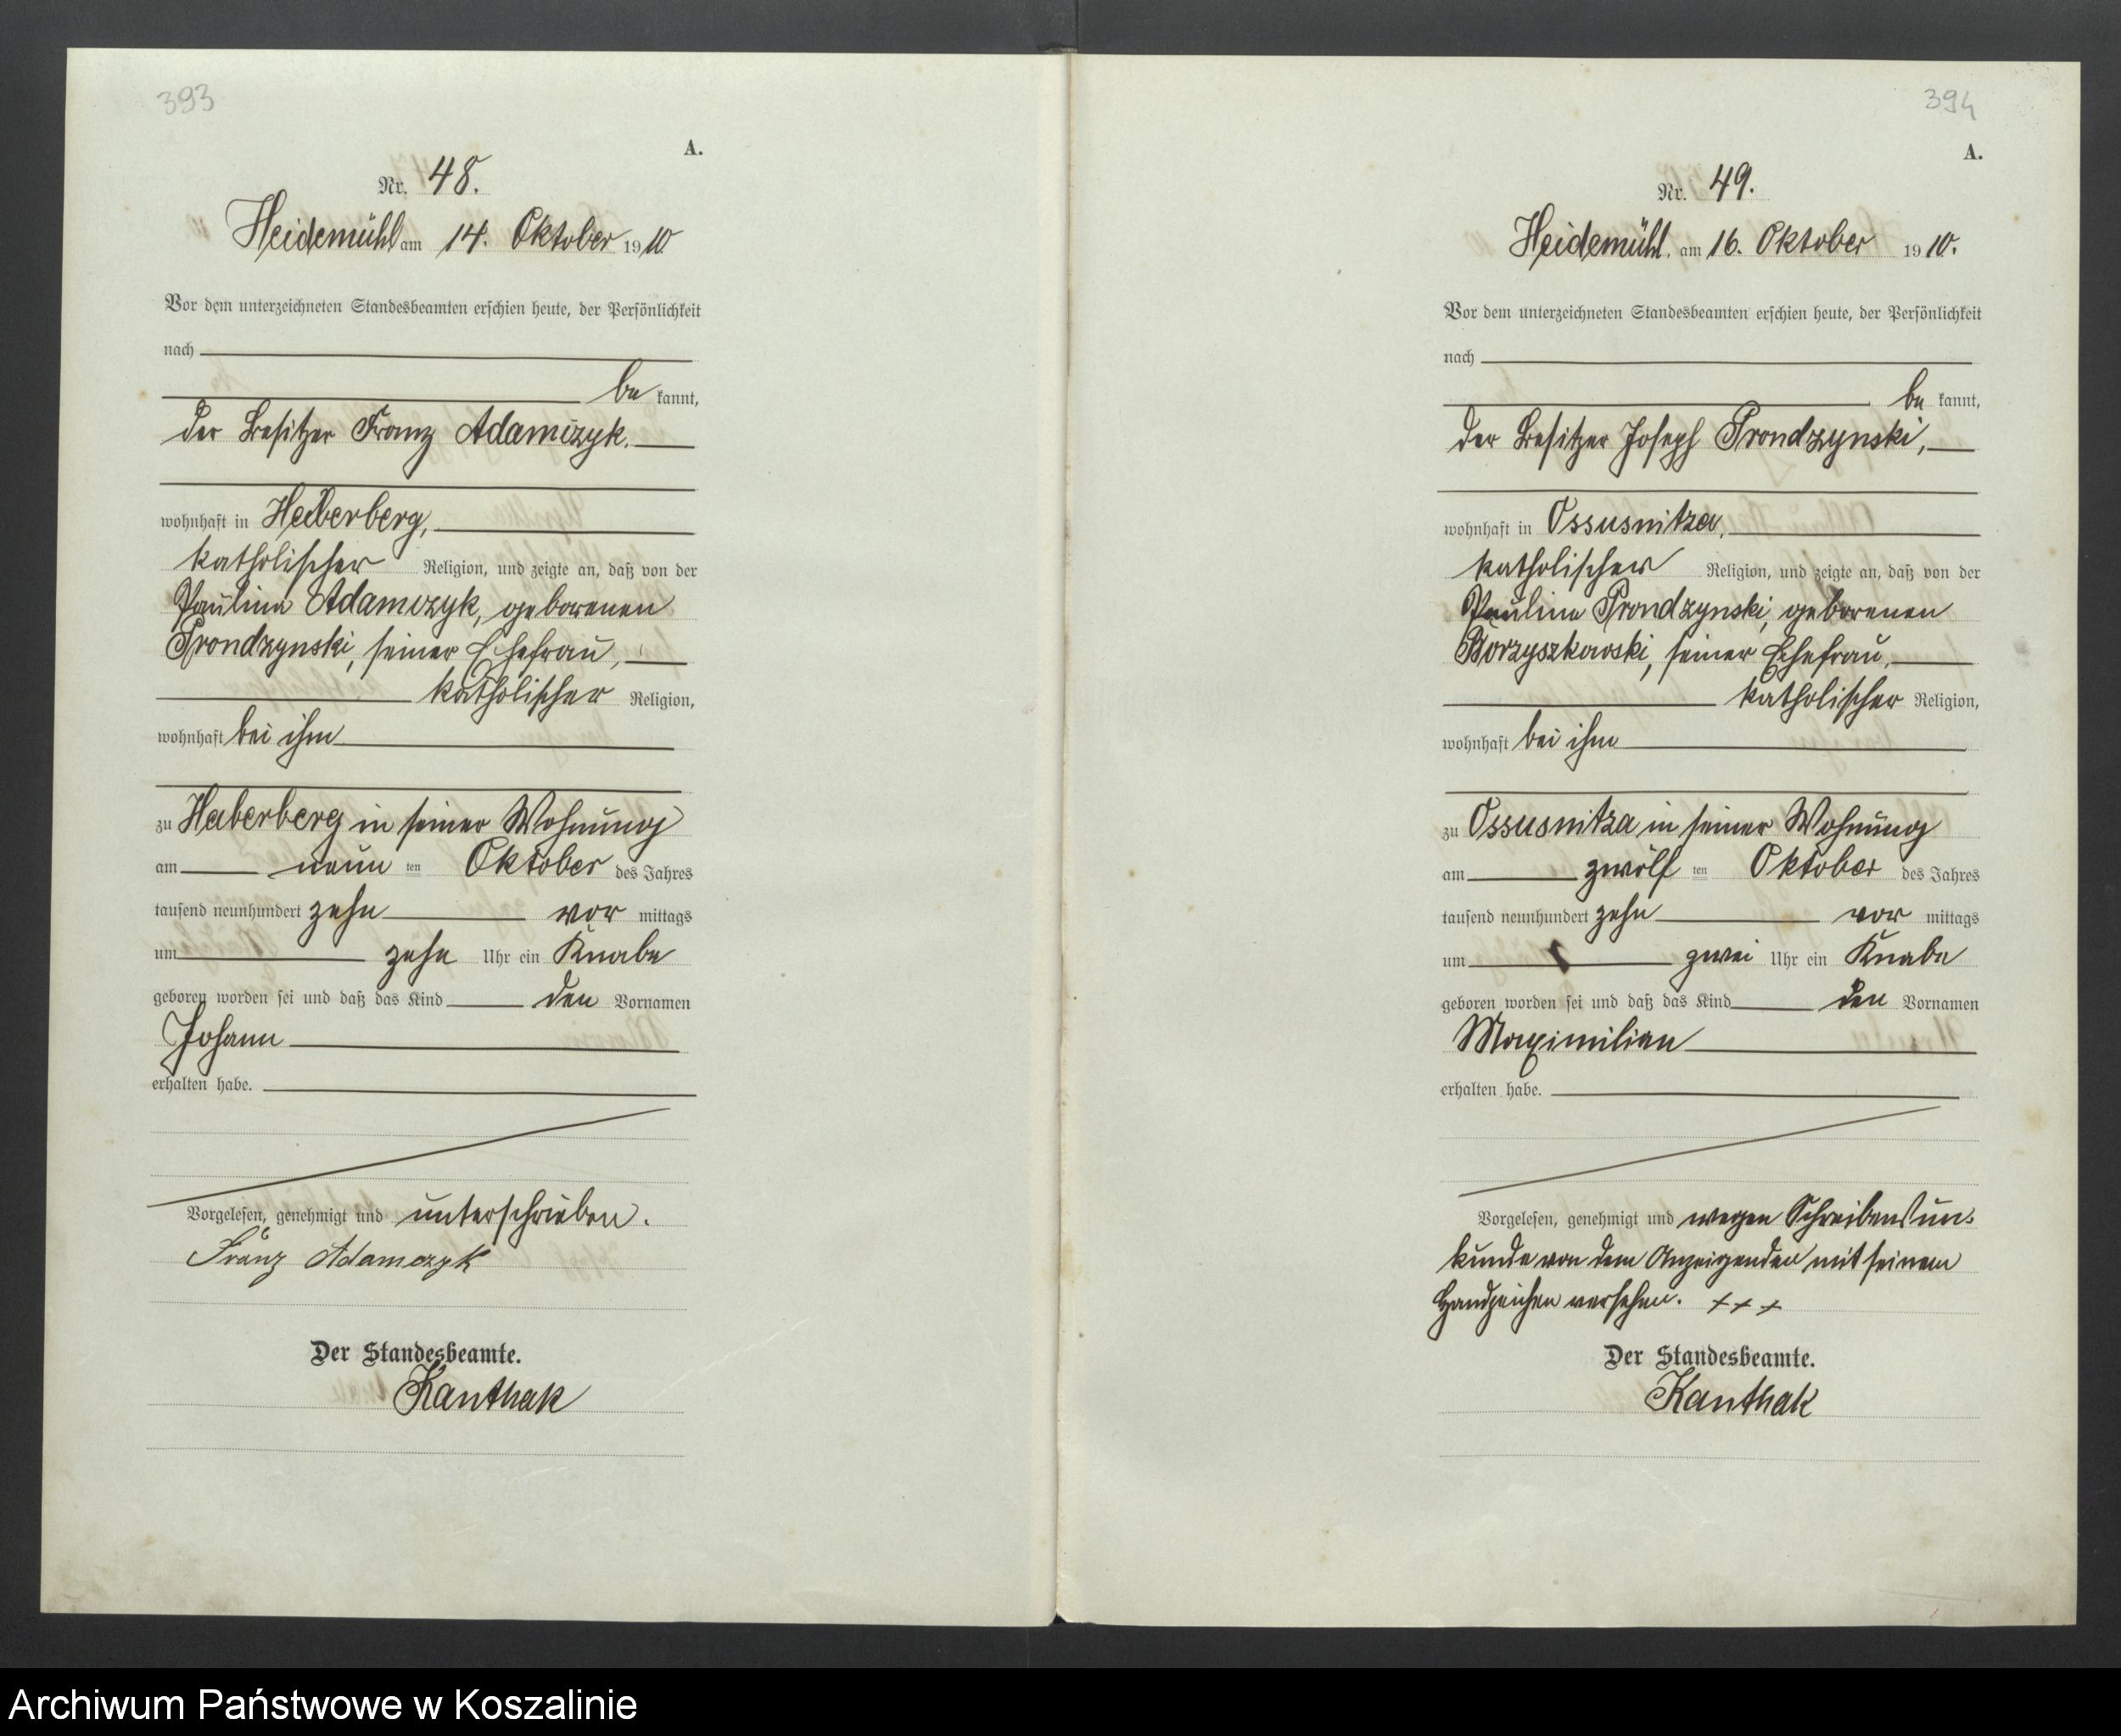 393
A.
Nr. 48.
Heidemühl am 14. Oktober 1910
Vor dem unterzeichneten Standesbeamten erschien heute, der Persönlichkeit
nach
be kannt,
der Besitzer Franz Adamczyk.
wohnhaft in Haberberg,
katholischer Religion, und zeigte an, daß von der
Paulina Adamczyk, geborenen
Prondzynski, seiner Ehefrau,
katholischer Religion,
wohnhaft bei ihm
zu Haberberg in seiner Wohnung
am neun ten Oktober des Jahres
tausend neunhundert zehn vor mittags
um zehn Uhr ein Knabe
geboren worden sei und daß das Kind den Vornamen
Johann
erhalten habe.
Vorgelesen, genehmigt und unterschrieben.
Franz Adamczyk
Der Standesbeamte.
Kanthak
394
A.
Nr. 49.
Heidemühl. am 16. Oktober 1910.
Vor dem unterzeichneten Standesbeamten erschien heute, der Persönlichkeit
nach
be kannt,
der Besitzer Joseph Prondzynski,
wohnhaft in Ossusnitza,
katholischer Religion, und zeigte an, daß von der
Paulina Prondzynski, geborenen
Borzyszkowski, seiner Ehefrau,
katholischer Religion,
wohnhaft bei ihm
zu Ossusnitza in seiner Wohnung
am zwölf ten Oktober des Jahres
tausend neunhundert zehn vor mittags
um zwei Uhr ein Knabe
geboren worden sei und daß das Kind den Vornamen
Maximilian
erhalten habe.
Vorgelesen, genehmigt und wegen Schreibensun-
kunde von dem Anzeigenden mit seinem
Handzeichen versehen. +++
Der Standesbeamte.
Kanthak
Archiwum Państwowe w Koszalinie